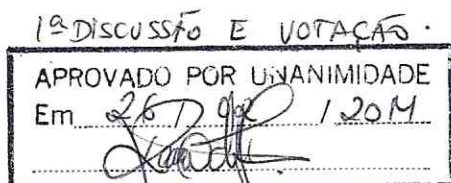 1ª DISCUSSÃO E VOTAÇÃO.
APROVADO POR UNANIMIDADE
Em 26 / / 2014